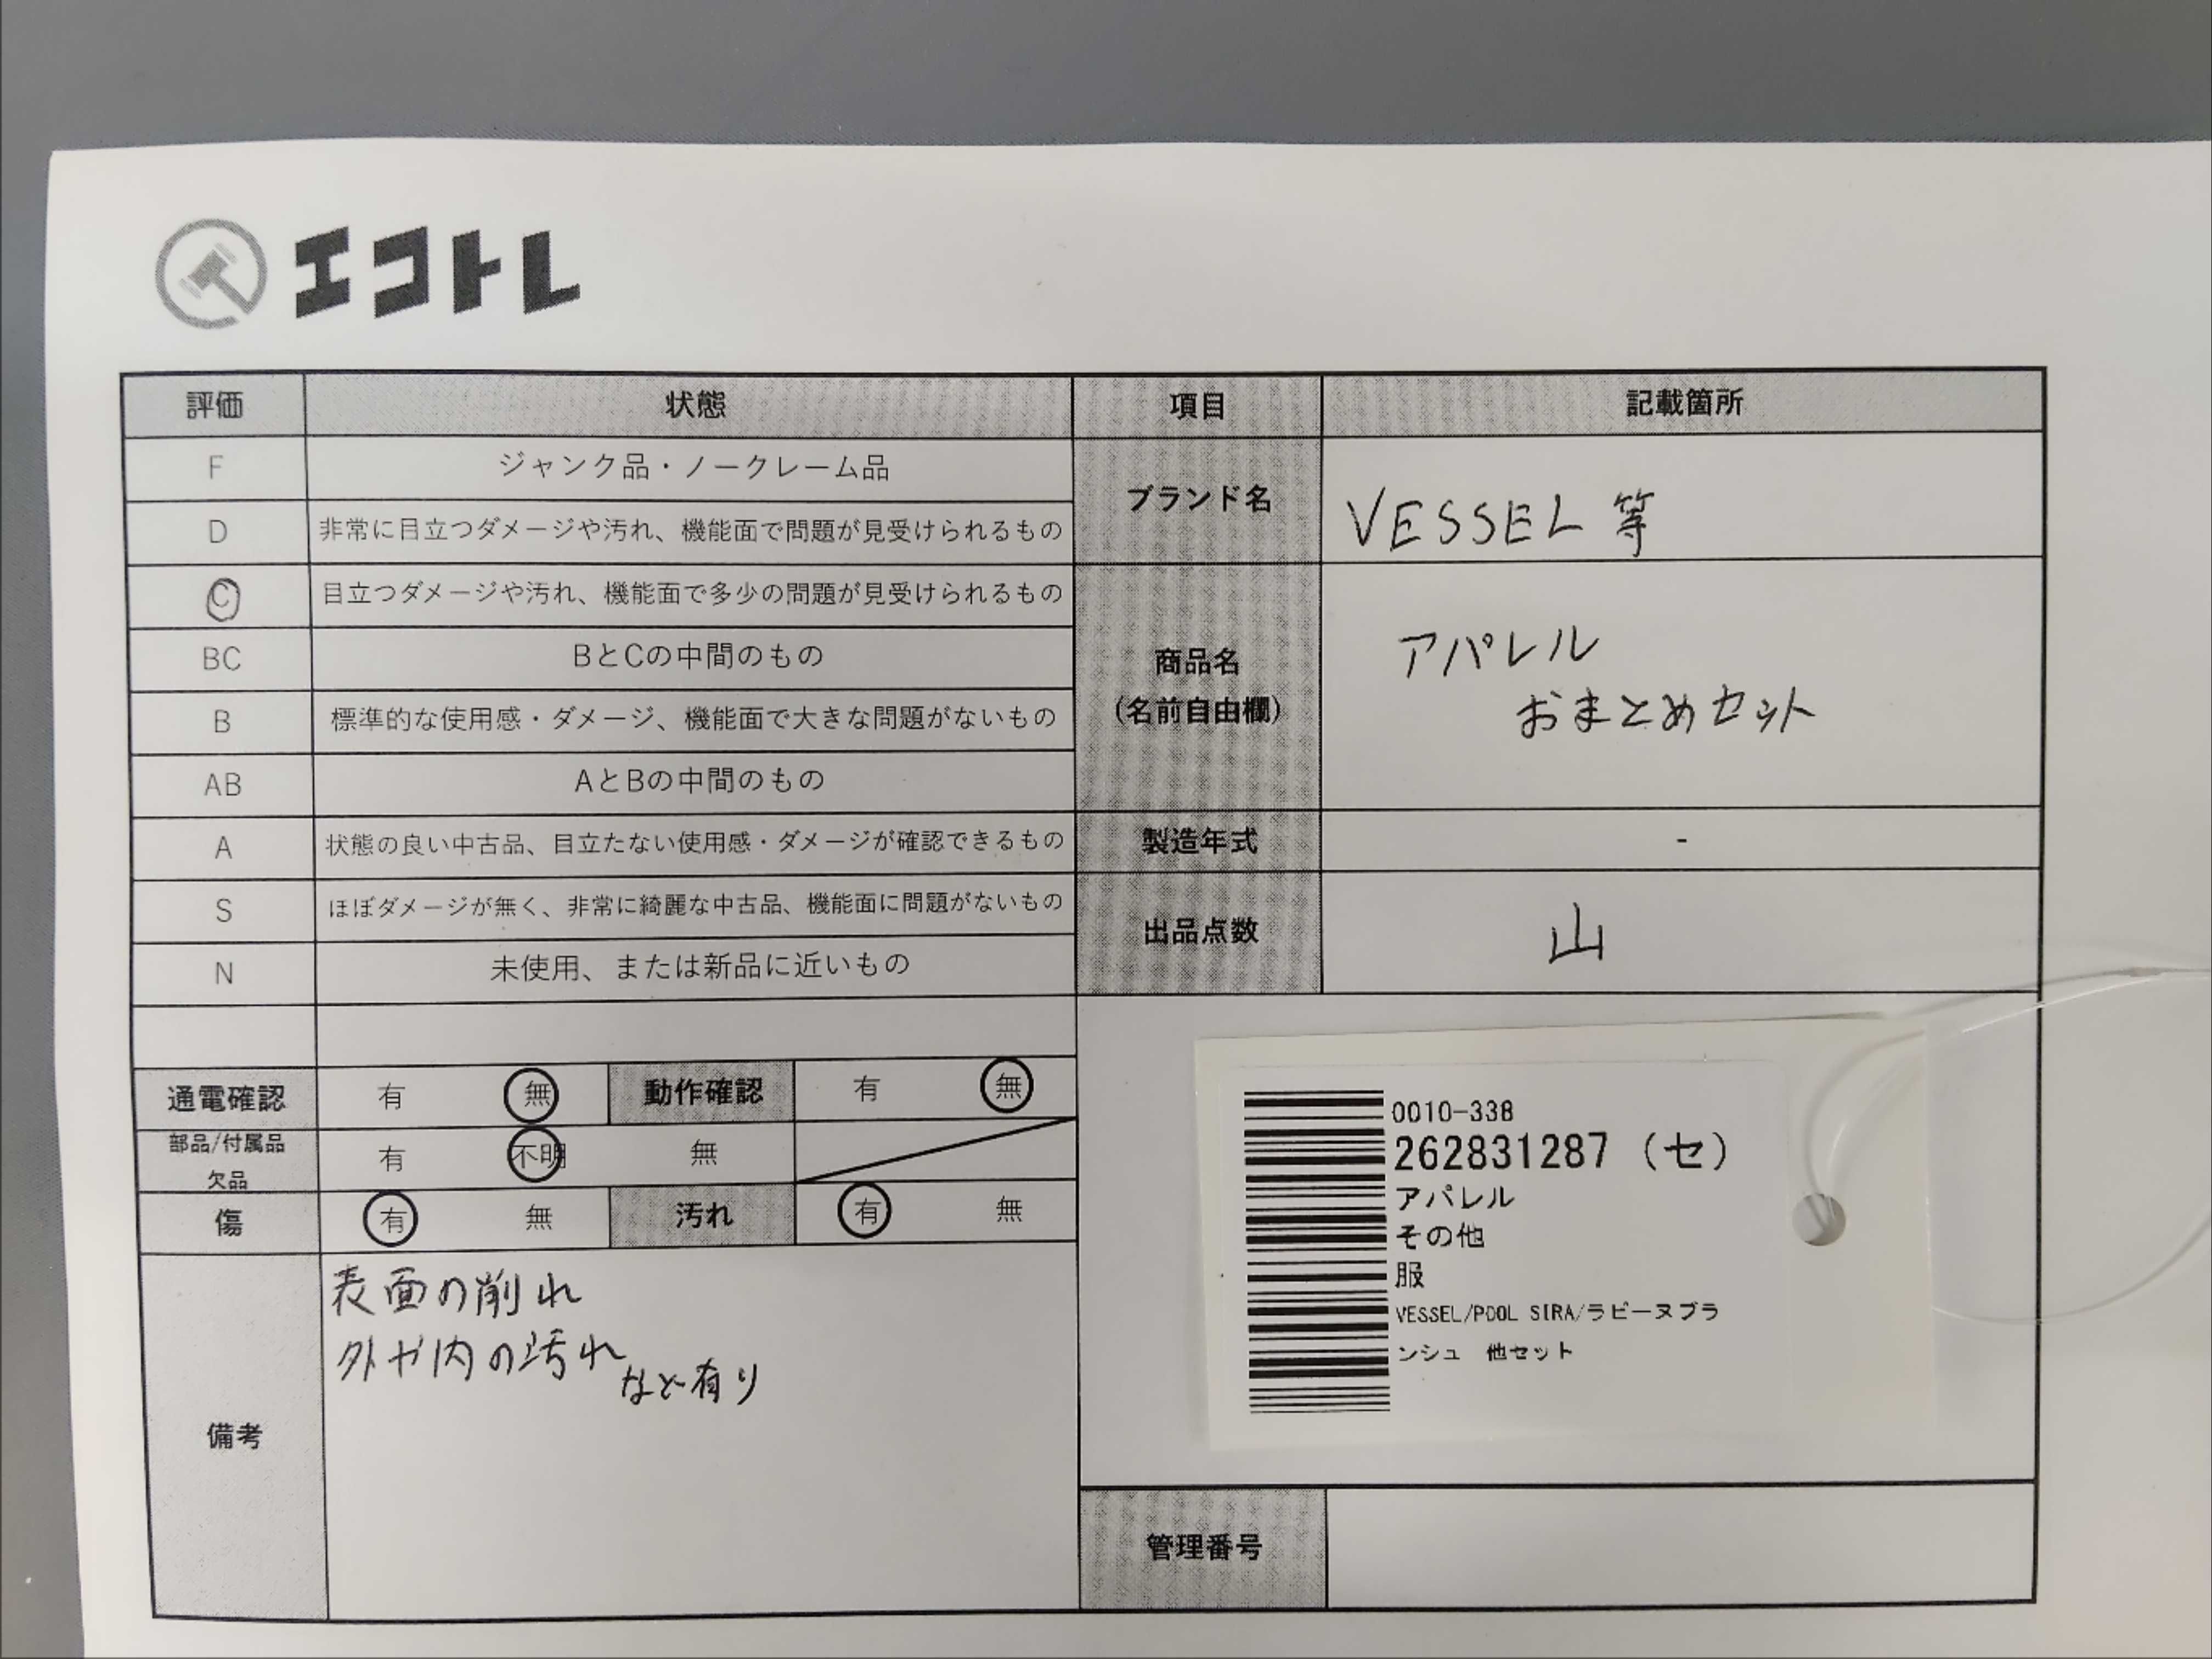 エコトレ
評価 状態 項目 記載箇所
F ジャンク品・ノークレーム品
D 非常に目立つダメージや汚れ、機能面で問題が見受けられるもの
C 目立つダメージや汚れ、機能面で多少の問題が見受けられるもの
BC BとCの中間のもの
B 標準的な使用感・ダメージ、機能面で大きな問題がないもの
AB AとBの中間のもの
A 状態の良い中古品、目立たない使用感・ダメージが確認できるもの
S ほぼダメージが無く、非常に綺麗な中古品、機能面に問題がないもの
N 未使用、または新品に近いもの
ブランド名 VESSEL 等
商品名
(名前自由欄)
アパレル
おまとめセット
製造年式 -
出品点数 山
通電確認 有 無 動作確認 有 無
部品/付属品
欠品
有 不明 無
傷 有 無 汚れ 有 無
備考
表面の削れ
外や内の汚れ
など有り
0010-338
262831287 (セ)
アパレル
その他
服
VESSEL/POOL SIRA/ラビーヌブラ
ンシュ 他セット
管理番号